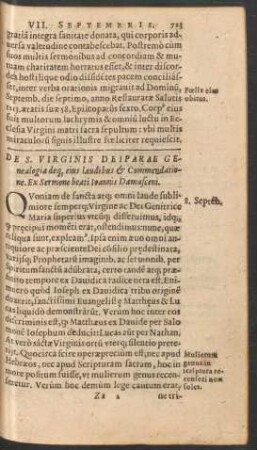 VII. SEPTEMBRIS. 725
gratiā integra sanitate donata, qui corporis ad
uersa valetudine contabescebat. Postremò cum
suos multis sermonibus ad concordiam & mu-
tuam charitatem hortatus esset, & inter discor-
des hostilique odio dissidētes pacem conciliás-
set, inter verba orationis migrauit ad Dominū,
Septemb. die septimo, anno Restauratæ Salutis
ætatis suæ 58, Episcopatus sexto. Corp⁹ eius
fuit multorum lachrymis & omniū luctu in Ec-
clesia Virgini matri sacra sepultum: vbi multis
miraculorū signis illustre fœliciter requiescit.
Pœlla eius
obitus.
DE S. VIRGINIS DEIPARAE GE-
nealogia deq, eius laudibus & Commendatio-
ne. Ex Sermone beati Ioannis Damasceni.
QVoniam de sancta atq; omni laude subli-
miore semperq; Virgine ac Dei Genitrice
Maria superius vtcūq; disseruimus, idq;
q præcipui momēti erat, ostendimus nunc, quæ
reliqua sunt, explicam⁹. Ipsa enim æuo omni an-
tiquiore ac præsciente Dei cōsilio prędeterminata,
varijsq; Prophetarū imaginib. ac sermonib. per
Spiritum sanctū adūbrata, certo tandē atq; præfi-
nito tempore ex Dauidica radice orta est. Eni-
muero quòd Ioseph ex Dauidica tribu originē
duxerit, sanctissimi Euangelistę Matthæus & Lu
cas liquidò demonstrārūt. Verùm hoc inter eos
discriminis est, q Matthæus ex Dauide per Salo
monē Iosephum deducit: Lucas aūt per Nathan.
At verò sāctæ Virginis ortū vterq; silentio prete-
rijt. Quocirca scire operæprecium est, nec apud
Hebræos, nec apud Scripturam sacram, hoc in
more positum fuisse, vt mulierum genus recen-
seretur. Verùm hoc demum lege cautum erat,
8. Septeb.
Mulierum
genus in
scriptura re
censeri non
solet.
Zz 2